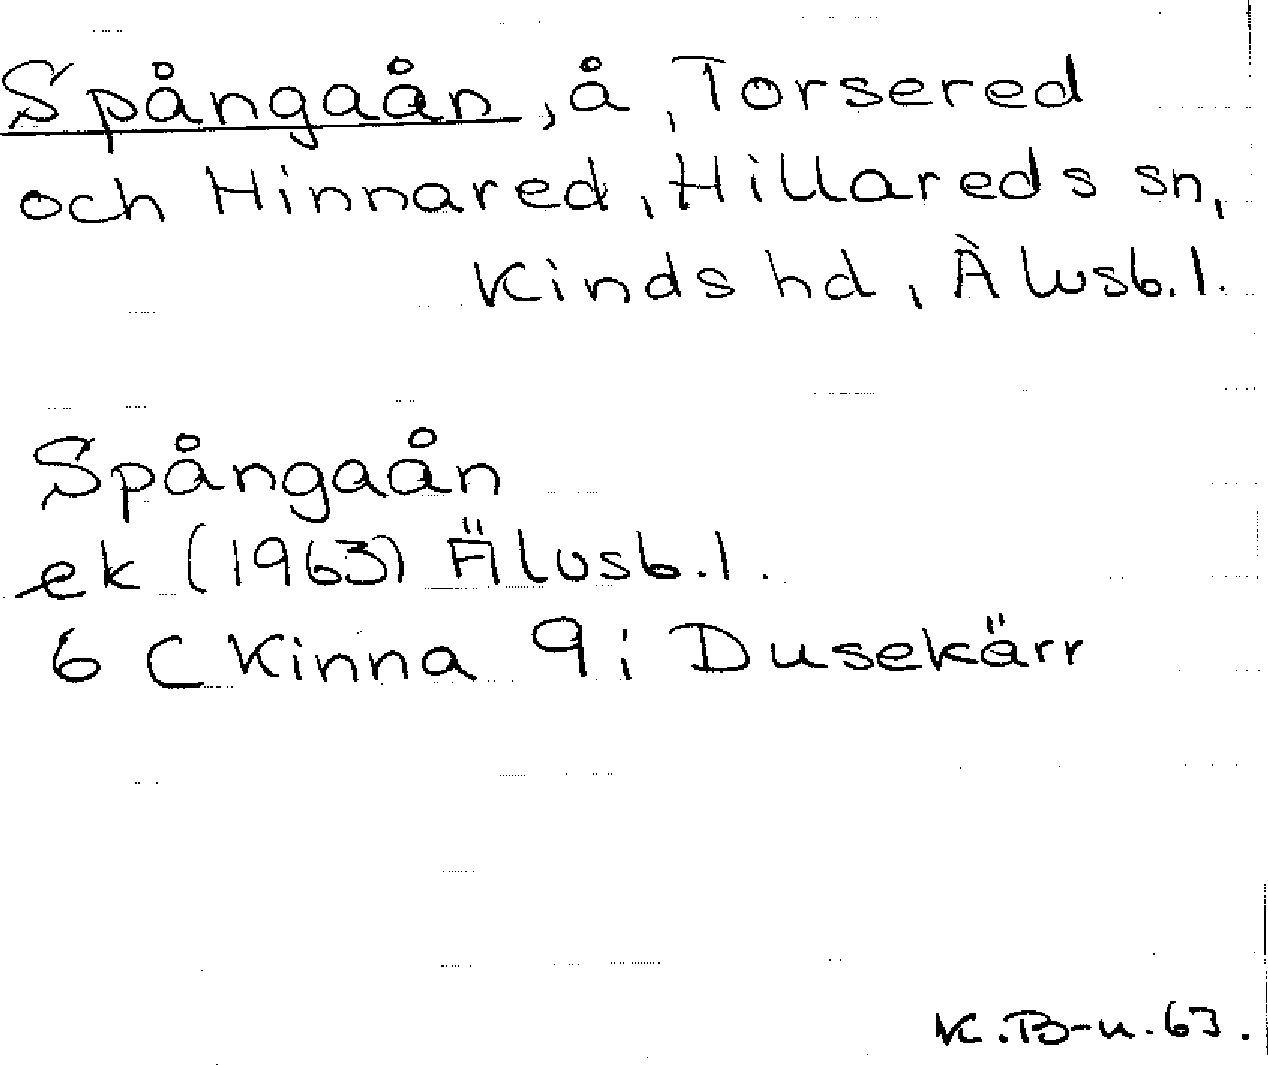 Spångaån, å, Torsered
och Hinnared, Hillareds sn,
Kinds hd, Älvsb. l.
Spångaån
ek (1963) Älvsb. l.
6 C Kinna 9 i Dusekärr
K. B-n. 63.